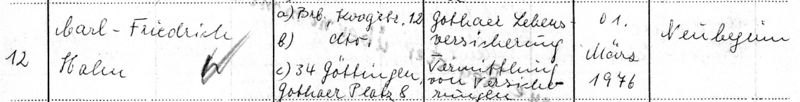 12
Carl-Friedrich
Hahn
a) Brb., 12
b) dto.
c) 34 Göttingen,
Gothaer Platz 8
Gothaer Lebens-
versicherung
Vermittlung
von Versiche-
rungen
01.
März
1976
Neubeginn